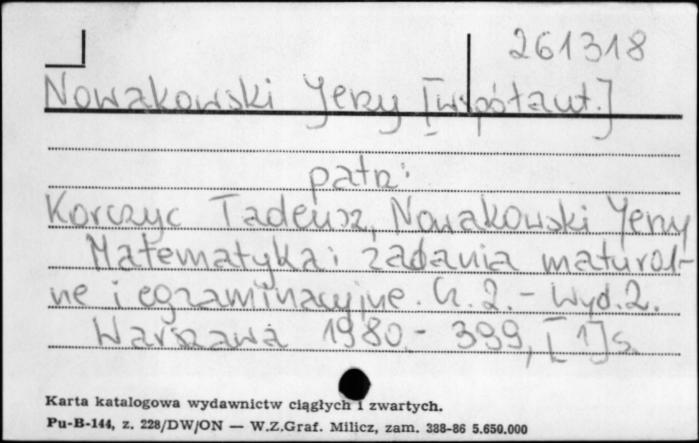 261318
Nowakowski Jerzy [współaut.]
patrz:
Korczyc Tadeusz, Nowakowski Jerzy
Matematyka: zadania matural-
ne i egzaminacyjne. Cz. 2. - Wyd. 2.
Warszawa 1980. - 399, [1] s.
Karta katalogowa wydawnictw ciągłych i zwartych.
Pu-B-144, z. 228/DW/ON — W.Z.Graf. Milicz, zam. 388-86 5.650.000